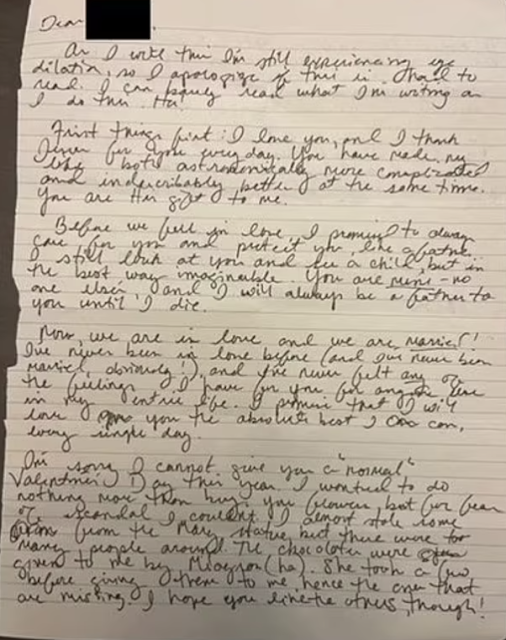 Dear
As I write this I'm still experiencing eye
dilation, so I apologize if this is hard to
read. I can barely read what I'm writing as
I do this. Ha!
First things first: I love you, and I thank
Jesus for you every day. You have made my
life both astronomically more complicated
and indescribably better at the same time.
You are His gift to me.
Before we fell in love, I promised to always
care for you and protect you, like a father.
I still look at you and see a child, but in
the best way imaginable. You are mine - no
one else's, and I will always be a father to
you until I die.
Now, we are in love and we are married!
I've never been in love before (and I've never been
married, obviously!), and I've never felt any of
the feelings I have for you for anyone else
in my entire life. I promise that I will
love you the absolute best I can,
every single day.
I'm sorry I cannot give you a "normal"
Valentine's Day this year. I wanted to do
nothing more than buy you flowers, but for fear
of scandal I couldn't. I almost stole some
from the Mary statue, but there were too
many people around. The chocolates were
given to me by (ha). She took a few
before giving them to me, hence the ones that
are missing. I hope you like the others, though!